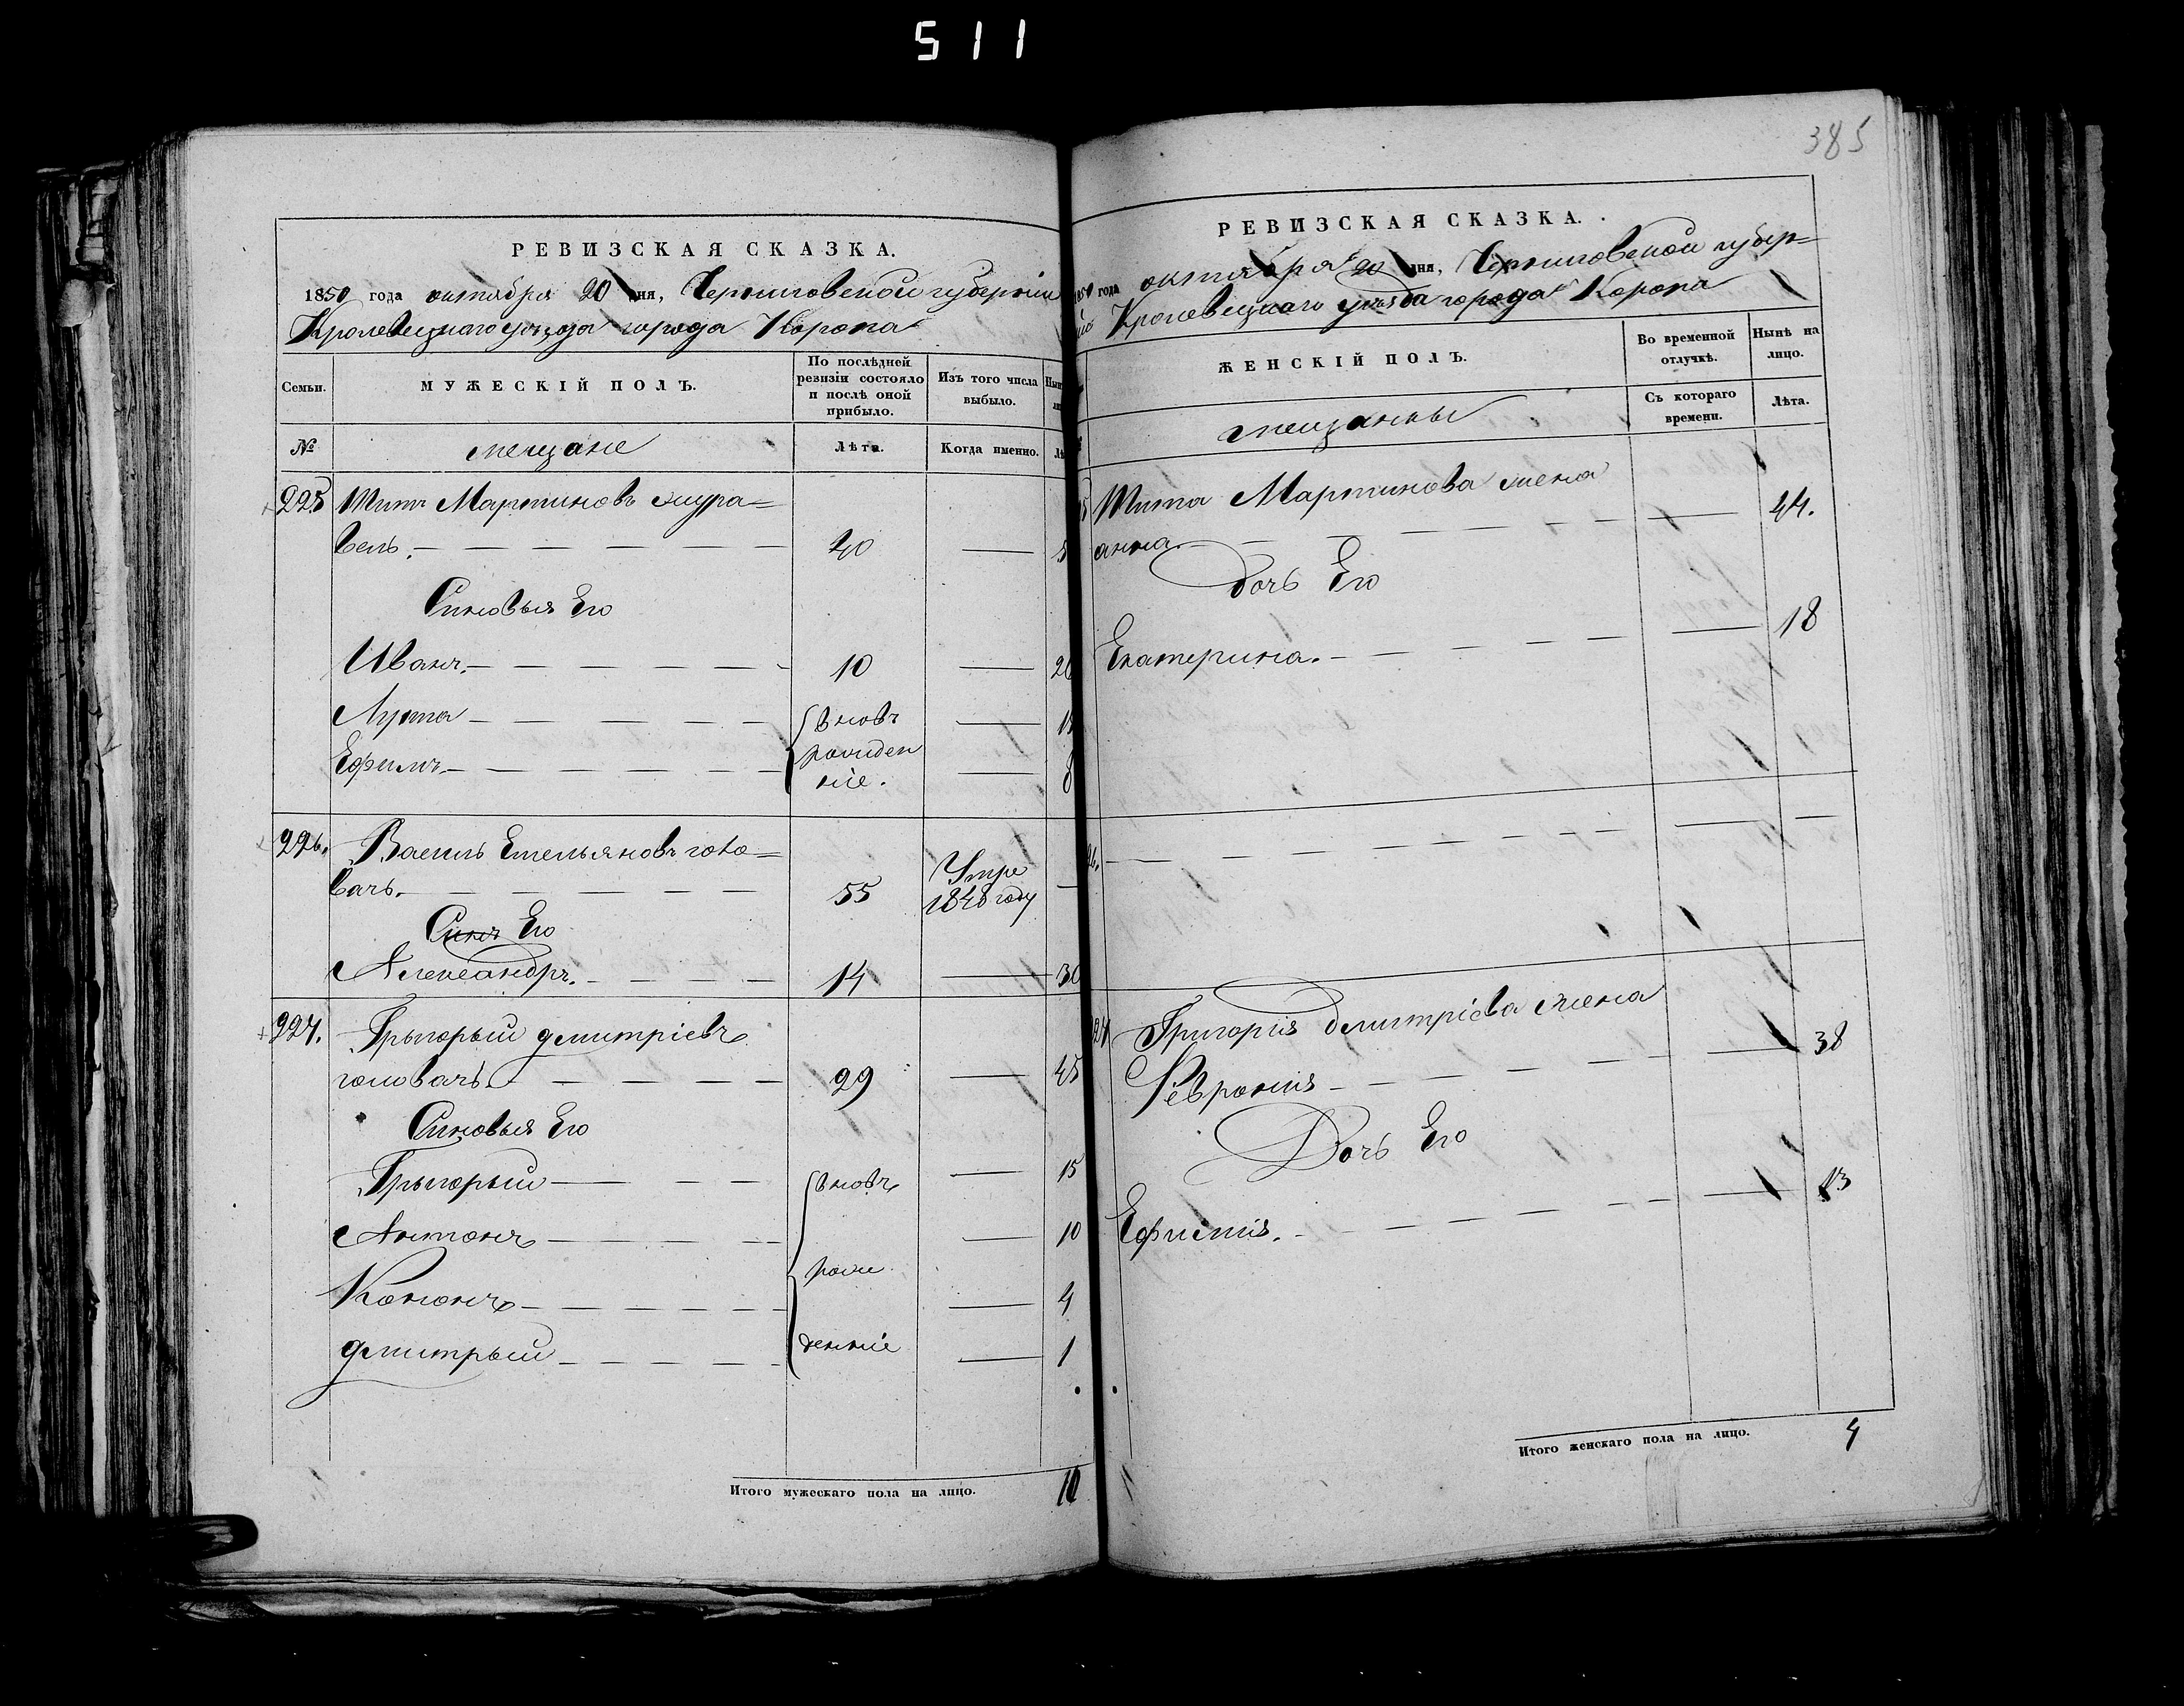 511
385
РЕВИЗСКАЯ СКАЗКА.
1850 года октября 20 дня, Черниговской губерніи
Кролевецкаго уѣзда города Коропа
Семьи.
МУЖЕСКІЙ ПОЛЪ.
По послѣдней
ревизіи состояло
и послѣ оной
прибыло.
Изъ того числа
выбыло.
№
мещане
Лѣта.
Когда именно.
225 Титъ Мартиновъ жура=
вель. 40
Синовья Его
Иванъ. 10
Лупа вновь
Ефимъ рожден
ніе. 8
226. Василь Емельяновъ голо=
вачъ. 55 Умре
1848 году
Синъ Его
Александръ. 14 30
227. Грыгорый дмитріевъ
головачъ. 29 45
Синовья Его
Грыгорый вновь 15
Антонъ 10
рож
Кононъ 4
дмитрый денніе 1
Итого мужескаго пола на лицо. 10
РЕВИЗСКАЯ СКАЗКА.
1850 года октября 20 дня, Черниговской губер=
ніи Кролевецкаго уѣзда города Коропа
ЖЕНСКІЙ ПОЛЪ.
Во временной
отлучкѣ.
Нынѣ на
лицо.
мещанки
Съ котораго
времени.
Лѣта.
Тита Мартинова жена
анна. 44.
дочь Его
Екатерина. 18
Григорія дмитріева жена
Февронія 38
Дочь Его
Ефимія. 13
Итого женскаго пола на лицо. 4